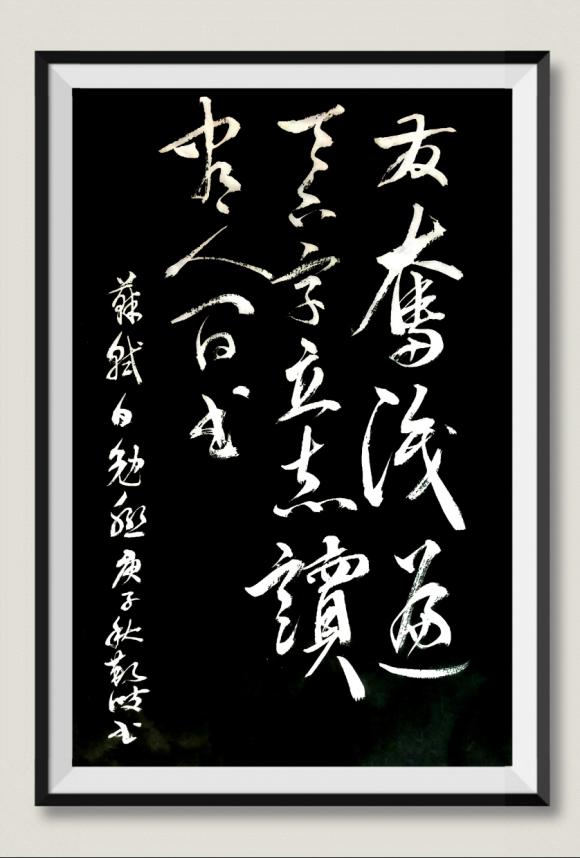 發奮識遍
天下字立志讀
盡人間書
蘇軾自勉聯庚子秋書